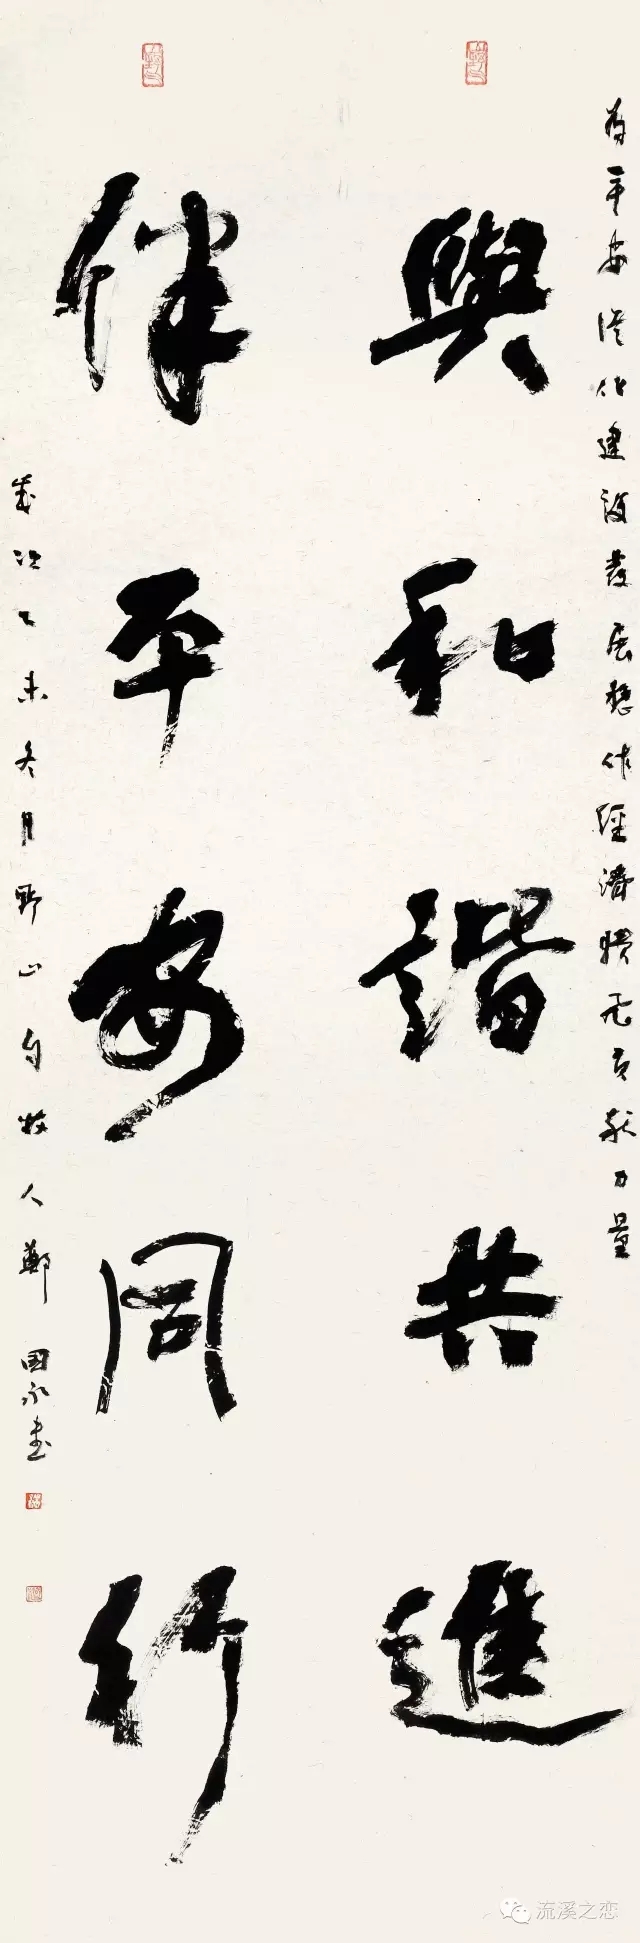 為平安從化建設發展穩作經濟騰飛貢獻力量
與和諧共進
伴平安同行
歲次乙未冬月野山自牧人鄭國永書
流溪之恋